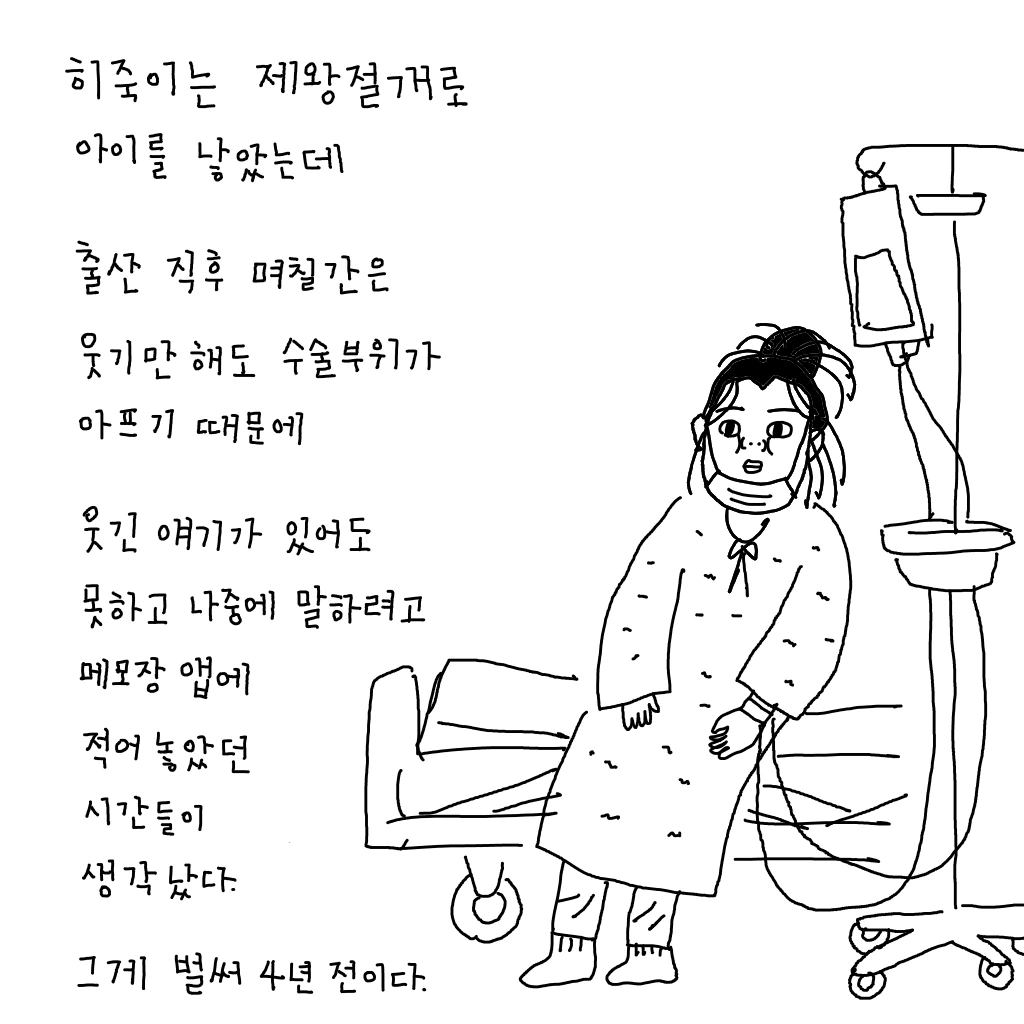 히죽이는 제왕절개로
아이를 낳았는데
출산 직후 며칠간은
웃기만 해도 수술부위가
아프기 때문에
웃긴 얘기가 있어도
못하고 나중에 말하려고
메모장 앱에
적어 놓았던
시간들이
생각났다.
그게 벌써 4년 전이다.